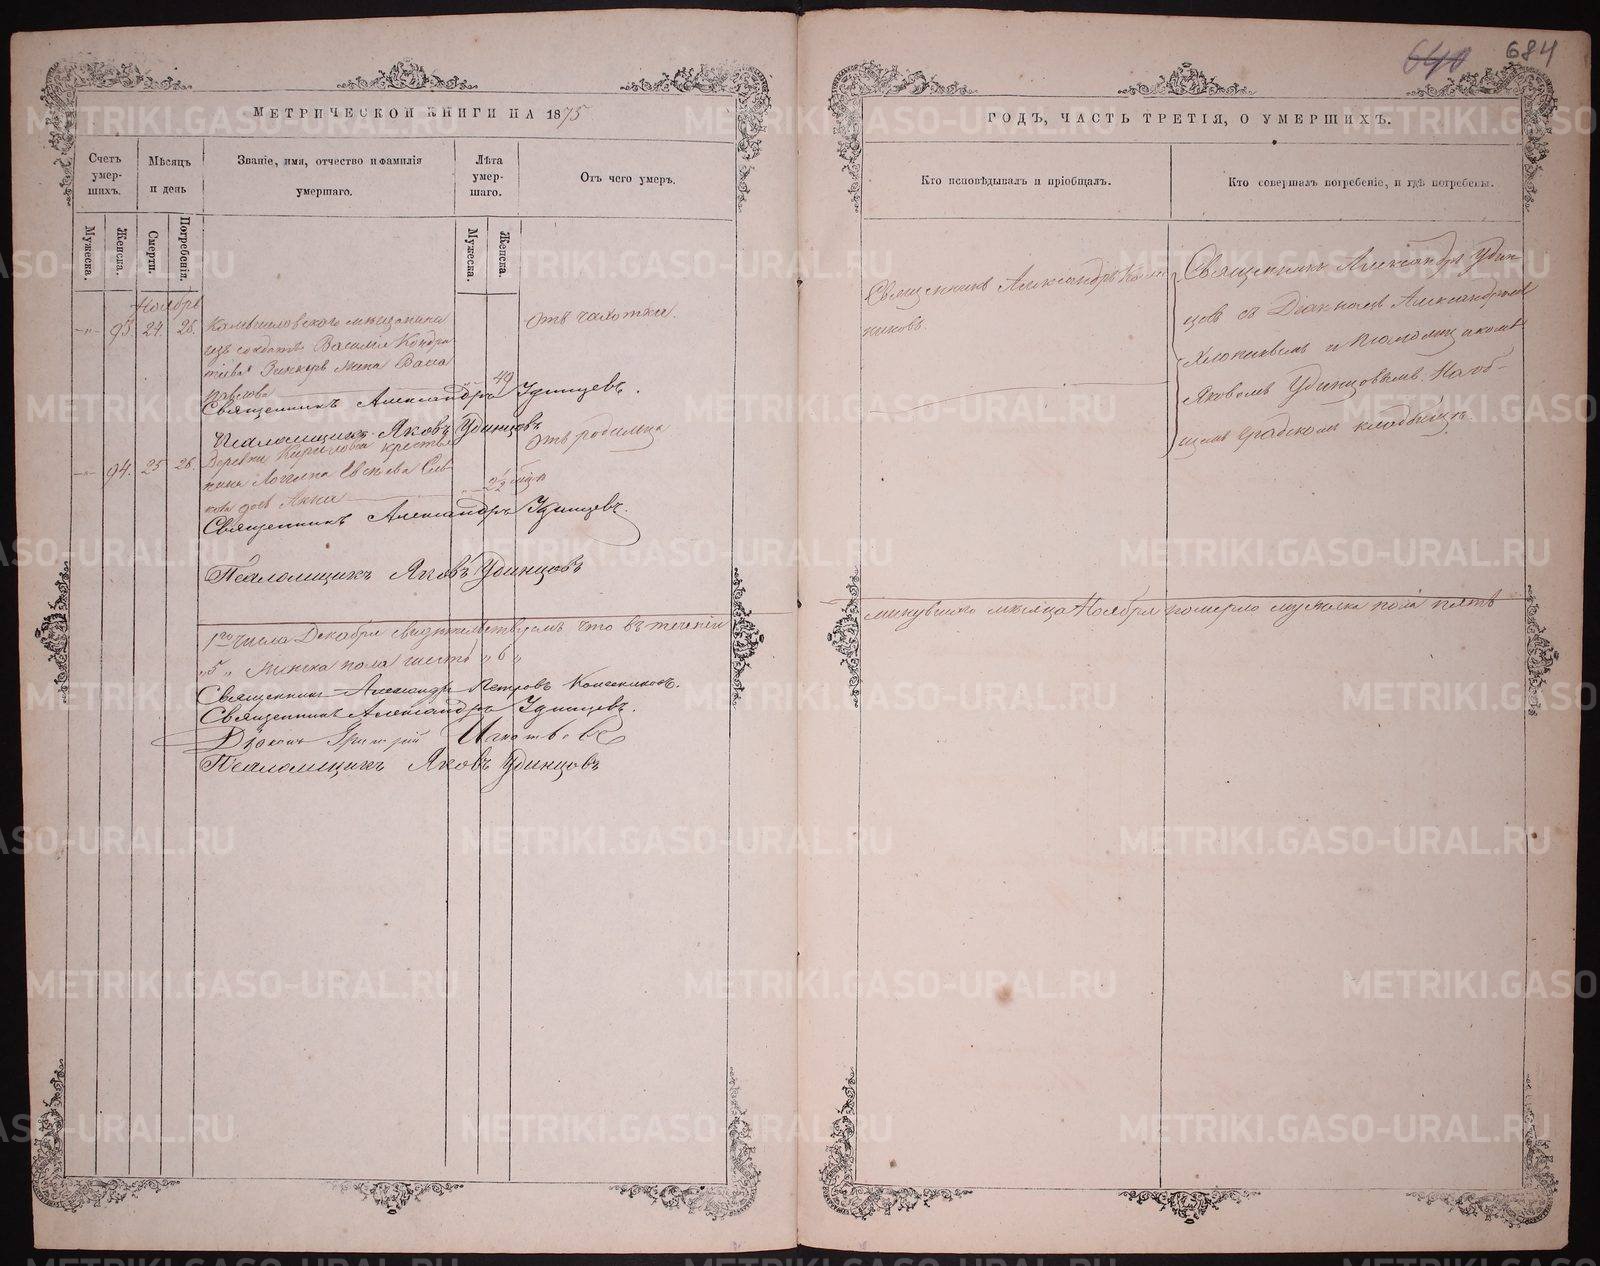 640 684
МЕТРИЧЕСКОЙ КНИГИ НА 1875
ГОДЪ, ЧАСТЬ ТРЕТІЯ, О УМЕРШИХЪ.
Счетъ умершихъ.
Мѣсяцъ и день
Званіе, имя, отчество и фамилія умершаго.
Лѣта умершаго.
Отъ чего умеръ.
Кто исповѣдывалъ и пріобщалъ.
Кто совершалъ погребеніе, и гдѣ погребены.
Мужеска.
Женска.
Смерти.
Погребенія.
Мужеска.
Женска.
Ноябрь
93. 24 26. Камышловскаго мѣщанина
изъ солдатъ Василія Кондра
тіева жена
Павлова
49
отъ чахотки.
Священникъ Александръ Удинцевъ.
Псаломщикъ Яковъ Удинцовъ
94. 25 26. Деревни Кириловой крестья
нина Евсѣева
дочь Анна
2½
отъ родимца
Священникъ Александръ Удинцевъ.
Псаломщикъ Яковъ Удинцовъ
Священникъ Александръ
никовъ.
Священникъ Александръ Удин
цовъ съ Діакономъ Александромъ
и Псаломщикомъ
Яковомъ Удинцовымъ. На об-
щемъ градскомъ кладбищѣ.
1го числа Декабря свидѣтельствуемъ что въ теченіи
минувшаго мѣсяца Ноября померло мужеска пола пять
„5„ женска пола шесть „6„
Священникъ Александръ Петровъ
Священникъ Александръ Удинцевъ.
Діаконъ Григорій
Псаломщикъ Яковъ Удинцовъ
METRIKI.GASO-URAL.RU